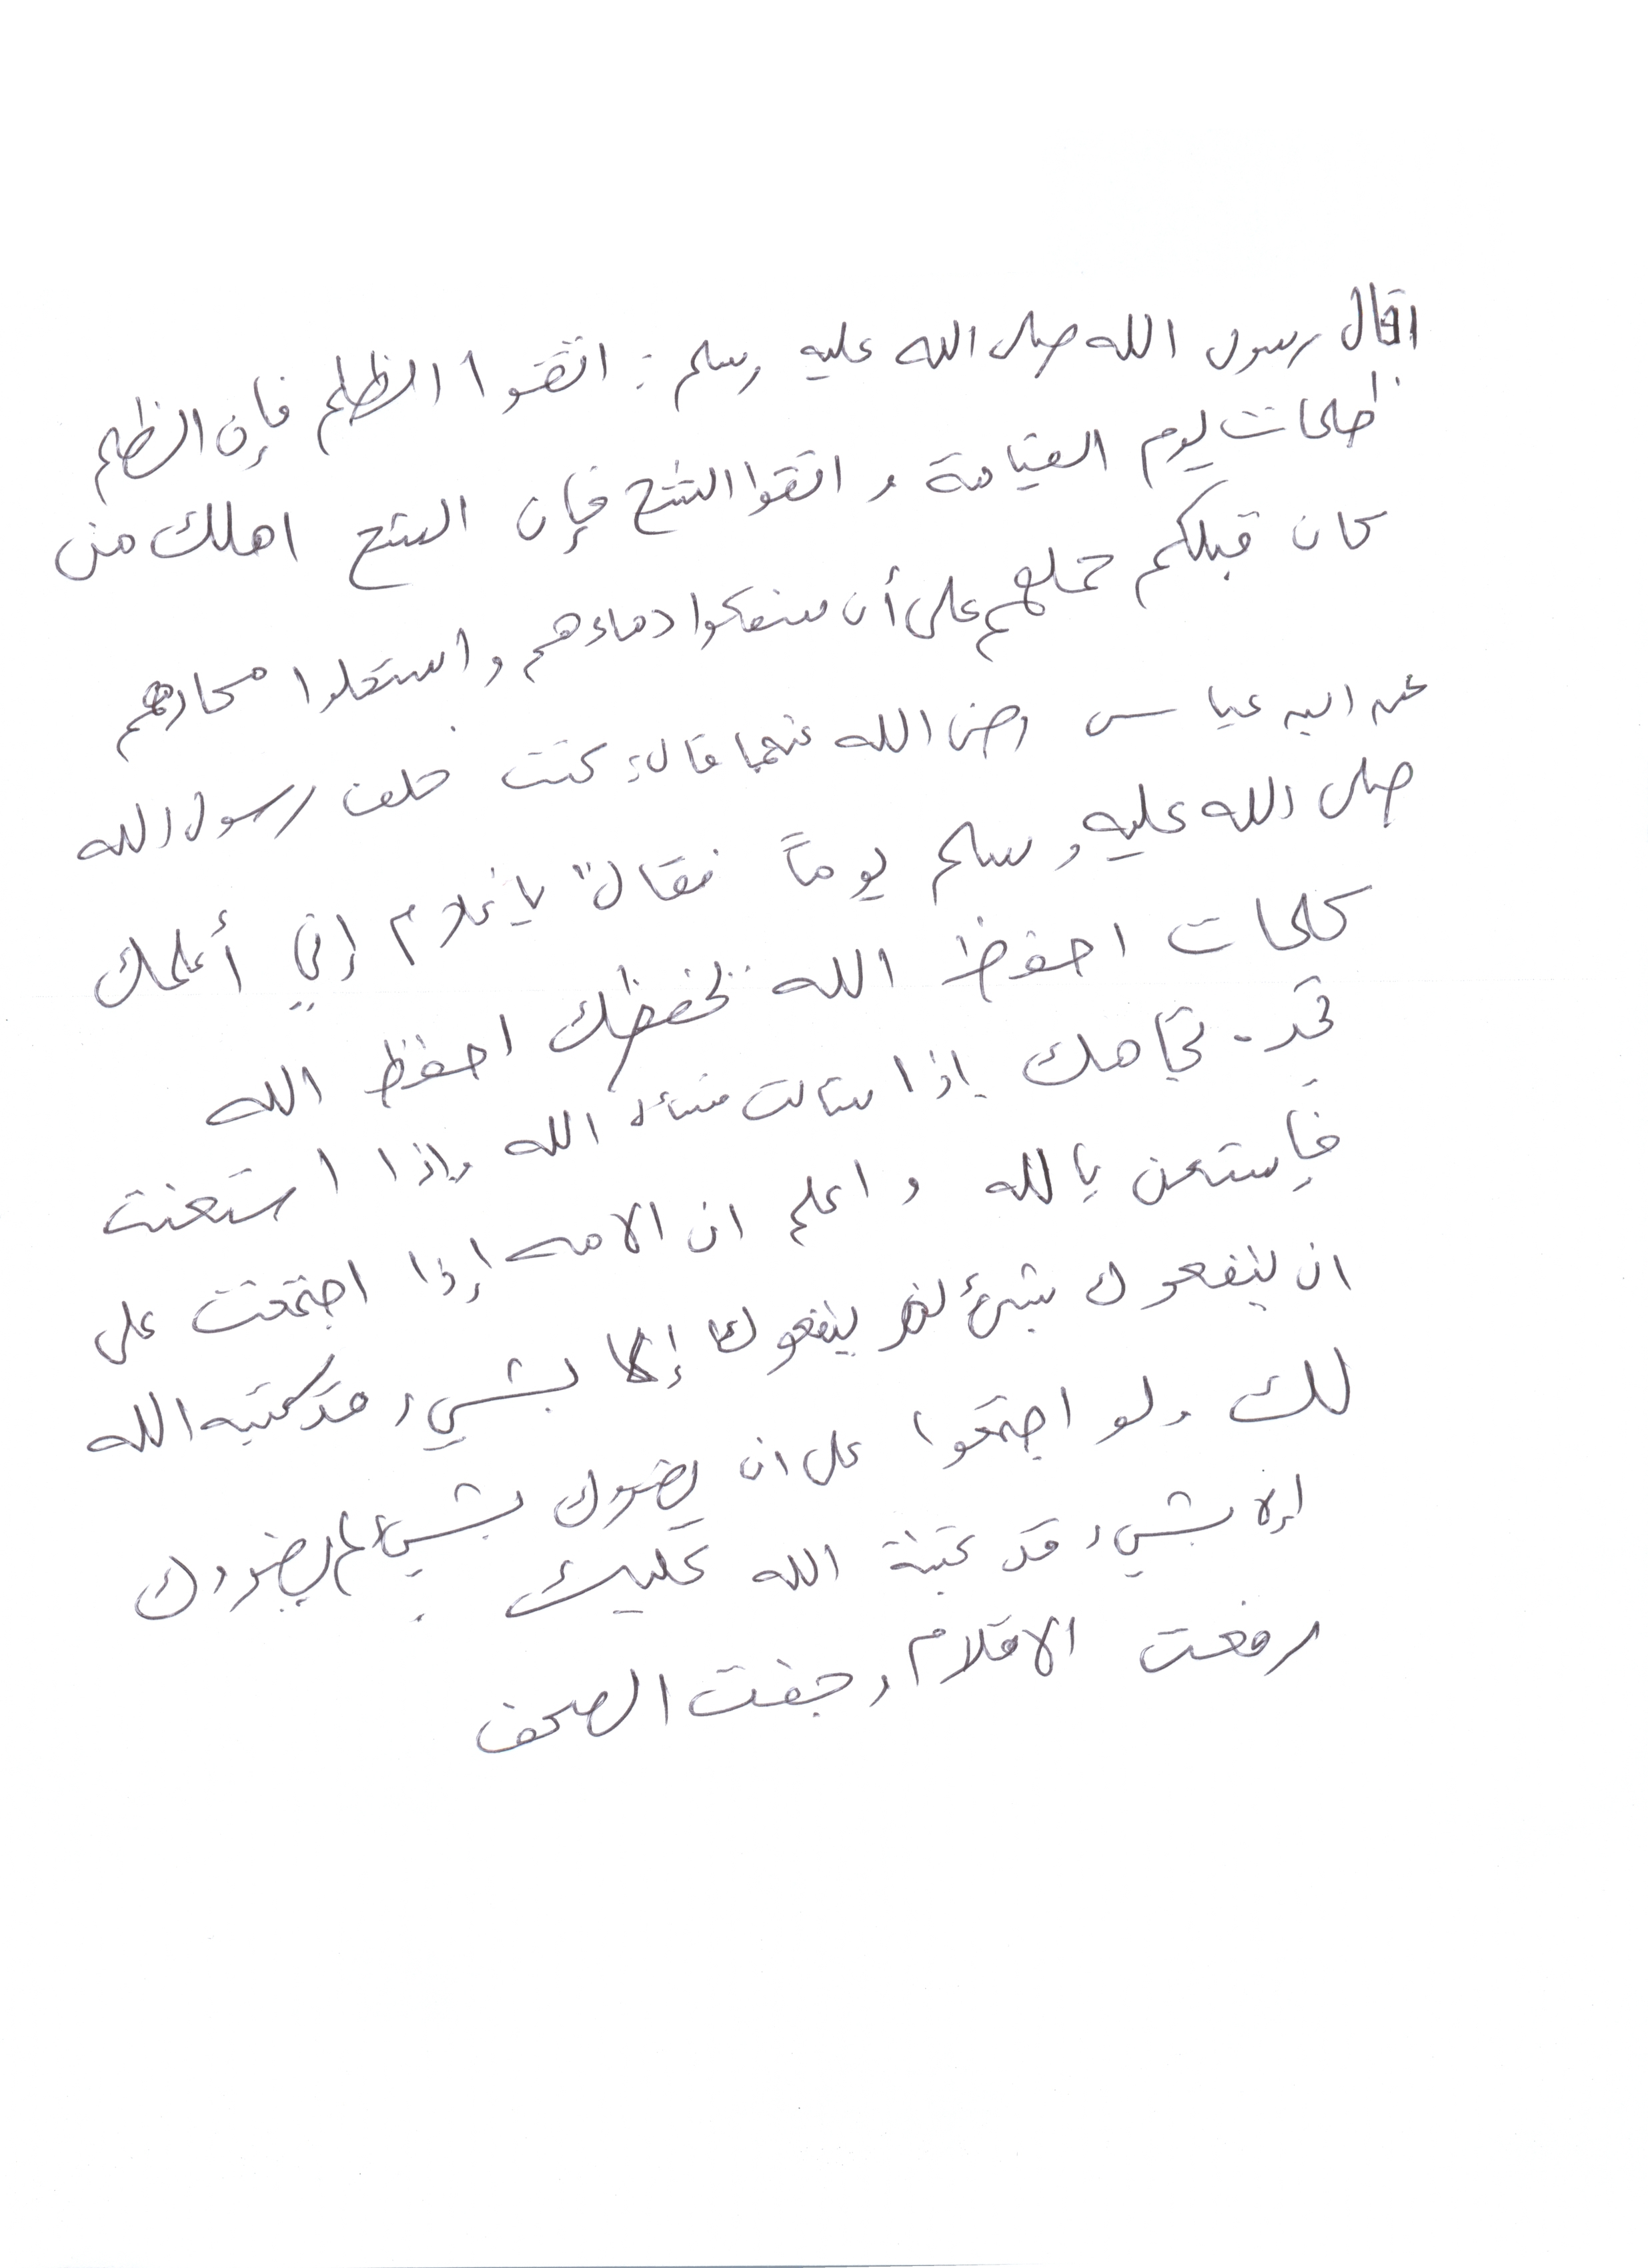 قال رسول الله صلى الله عليه وسلم : اتقوا الظلم فإن الظلم
ظلمات يوم القيامة و اتقوا الشح فإن الشح اهلك من
كان قبلكم حملهم على أن سفكوا دماءهم و استحلوا محارمهم
عن ابن عباس رضي الله عنهما قال: كنت خلف رسول الله
صلى الله عليه وسلم يوماً فقال" يا غلام إني أعلمك
كلمات احفظ الله يحفظك احفظ الله
تجد تجاهك إذا سالت فسئل الله وإذا استعنت
فإستعن بالله و اعلم ان الامه إذا اجتمعت على
ان ينفعوك بشئ لم ينفعوك إلا بشيء قد كتبه الله
لك ولو اجتمعوا على ان يضروك بشيء لم يضروك
إلا بشيء قد كتبة الله عليك
رفعت الاقلام وجفت الصحف